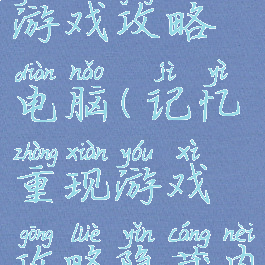 游戏攻略
diàn nǎo jì yì
电脑(记忆
zhòng xiàn yóu xì
重现游戏
gōng lüè yǐn cáng nèi
攻略隐藏内